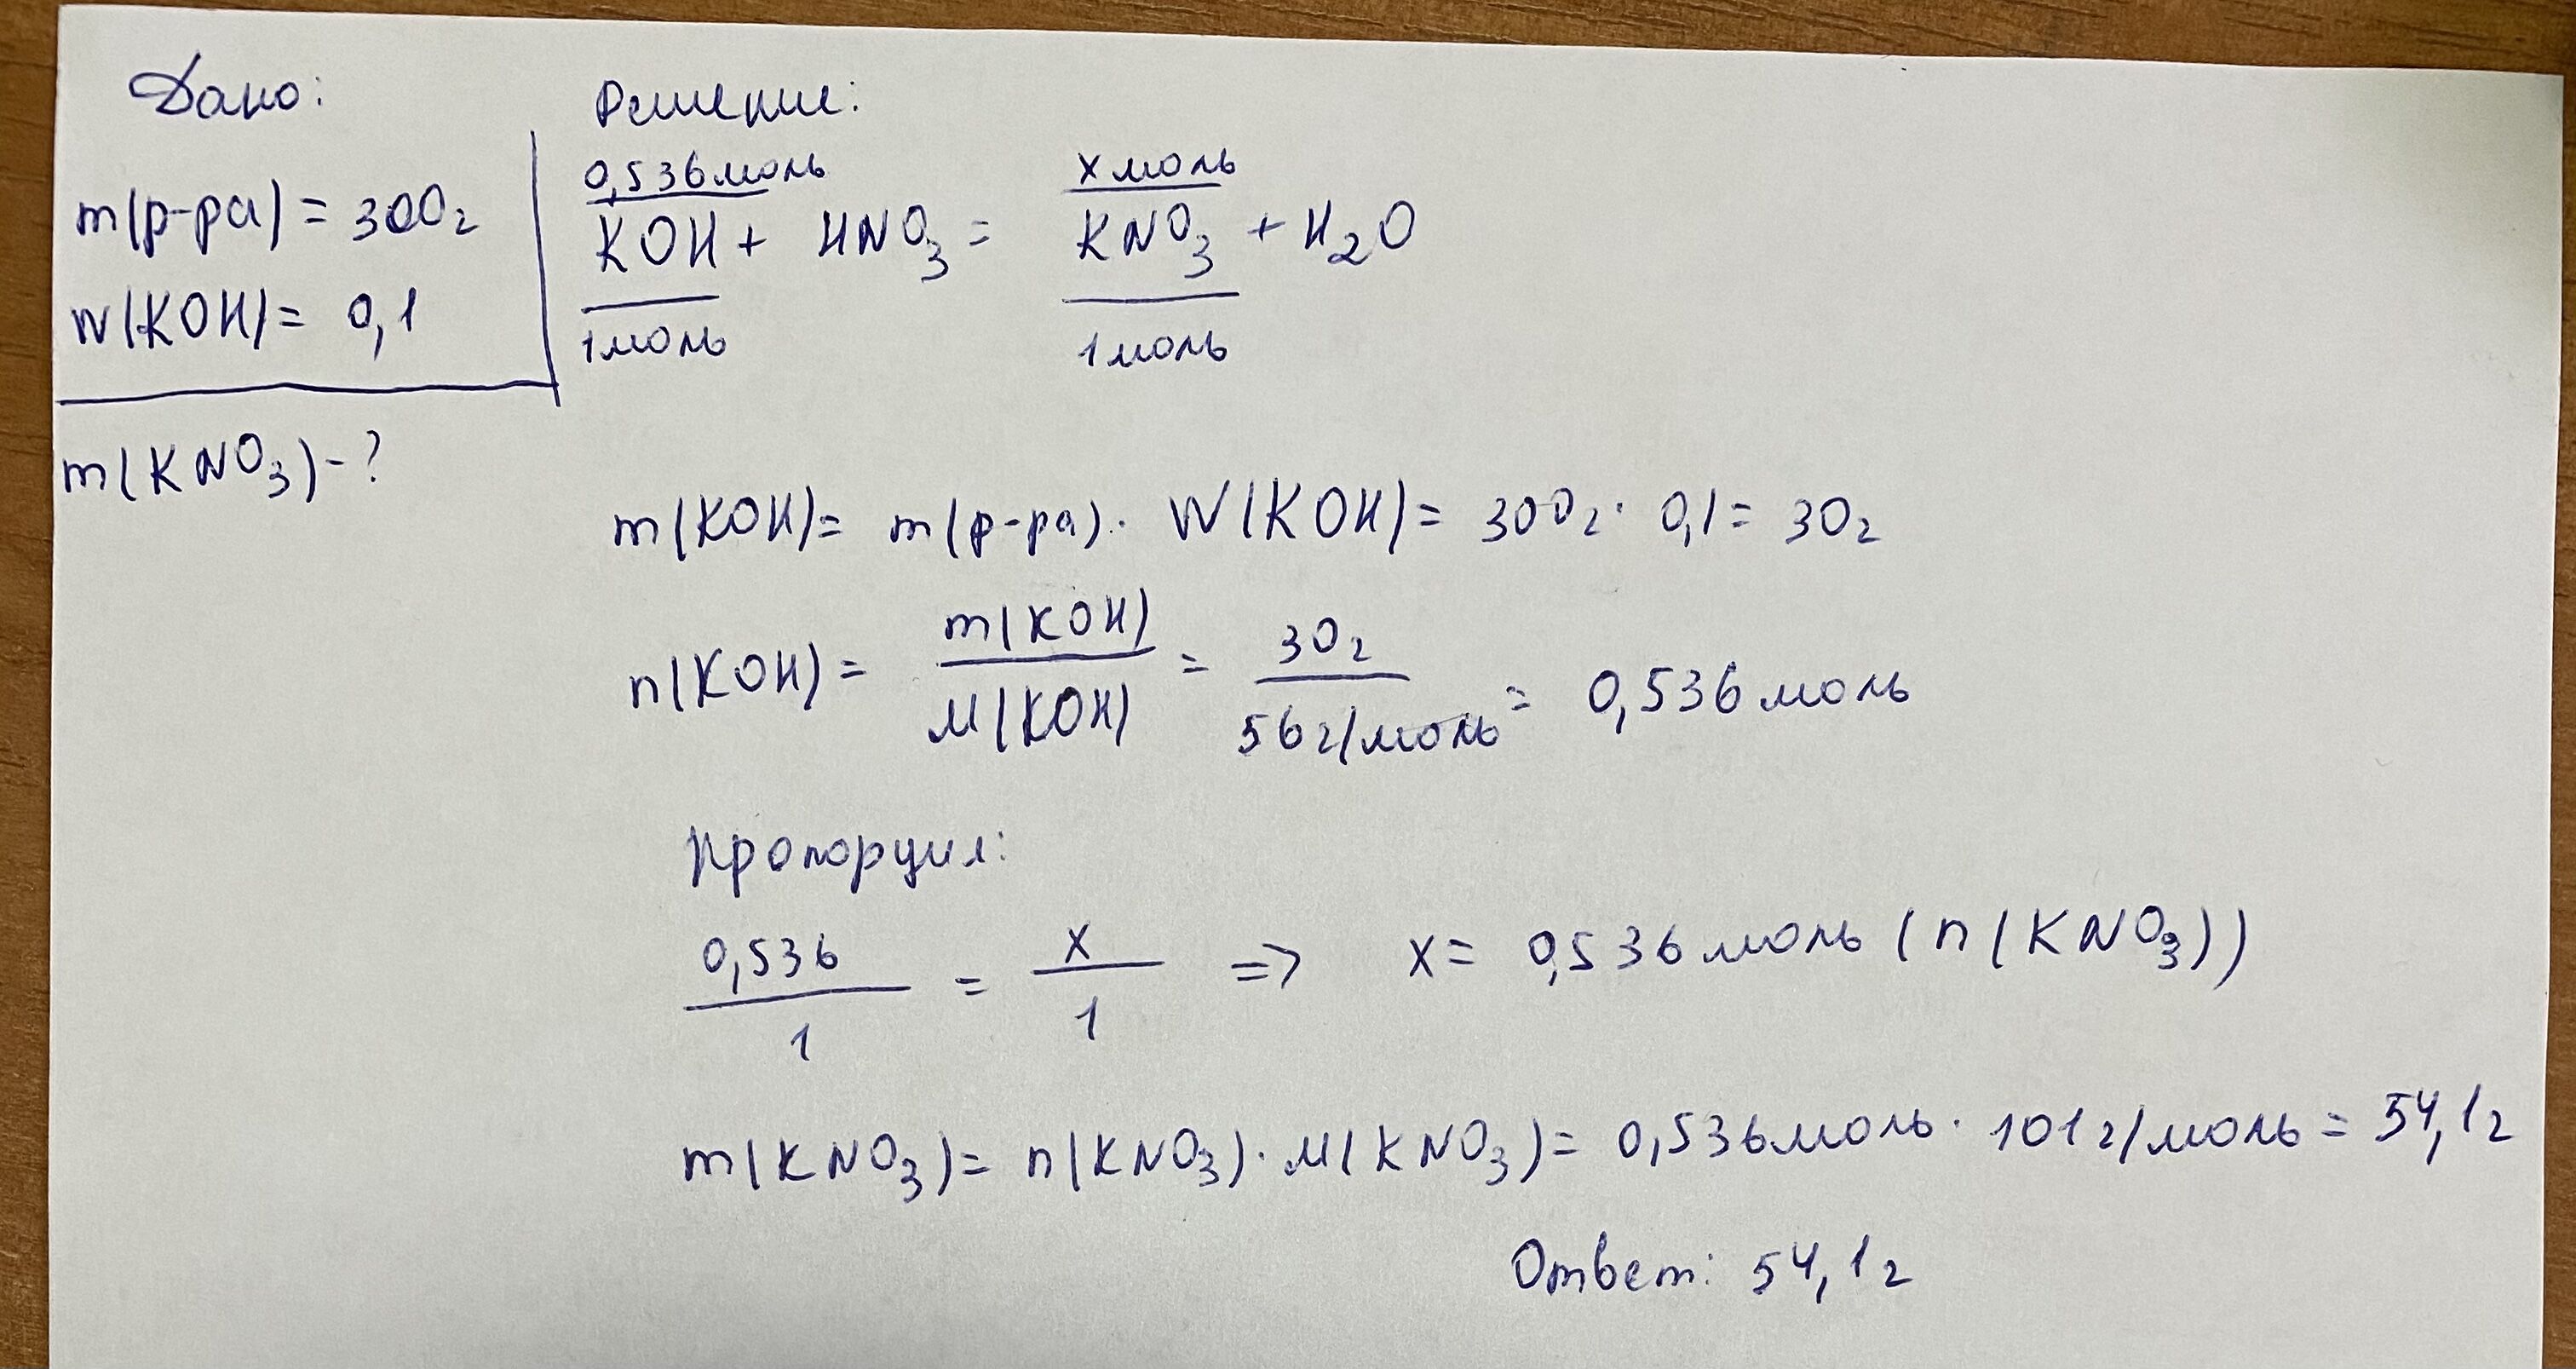 Дано:
m(р-ра) = 300г
W(KOH) = 0,1
m(KNO₃) - ?
Решение:
0,536моль x моль
KOH + HNO₃ = KNO₃ + H₂O
1моль 1моль
m(KOH) = m(р-ра) · W(KOH) = 300г · 0,1 = 30г
n(KOH) = m(KOH) / M(KOH) = 30г / 56г/моль = 0,536моль
Пропорция:
0,536 / 1 = x / 1 => x = 0,536моль (n(KNO₃))
m(KNO₃) = n(KNO₃) · M(KNO₃) = 0,536моль · 101г/моль = 54,1г
Ответ: 54,1г